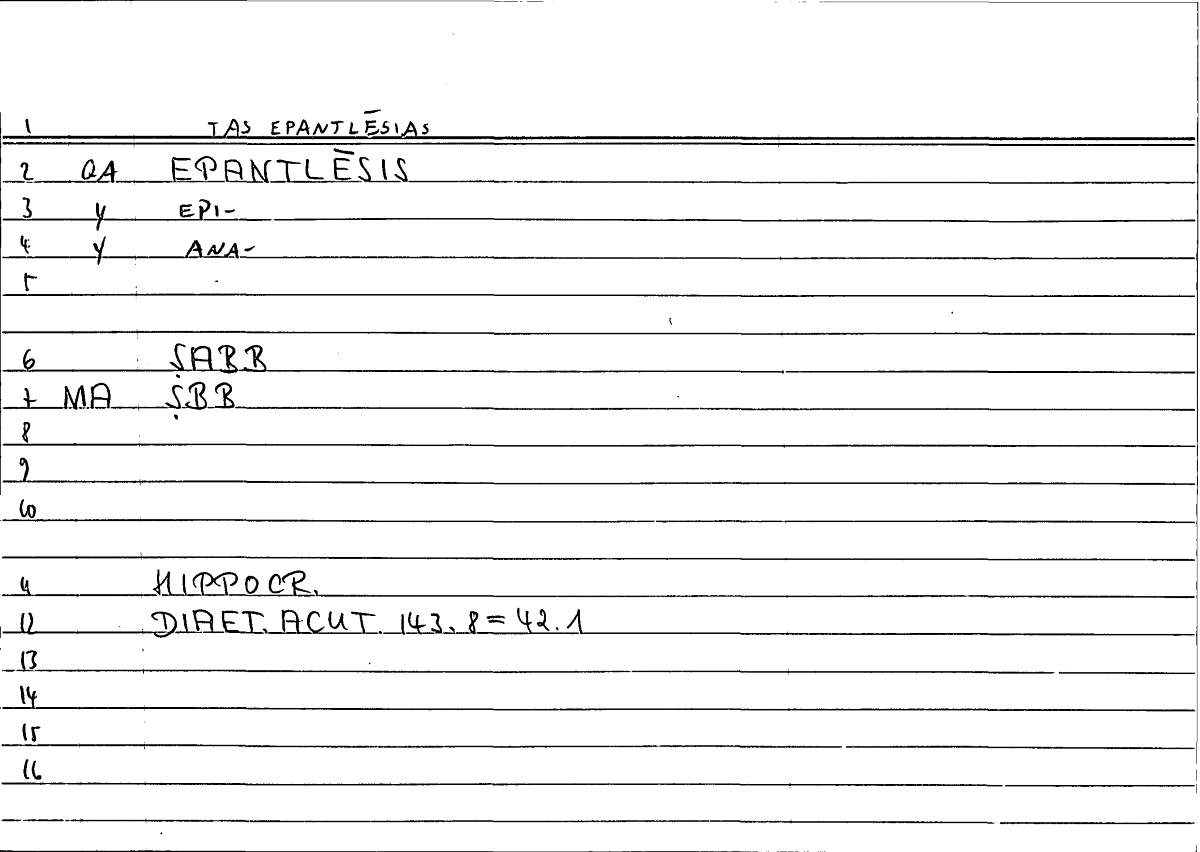 1 TAS EPANTLĒSIAS
2 QA EPANTLĒSIS
3 y EPI-
4 y ANA-
5
6 ṢABB
7 MA ṢBB
8
9
10
11 HIPPOCR.
12 DIAET. ACUT. 143.8=42.1
13
14
15
16